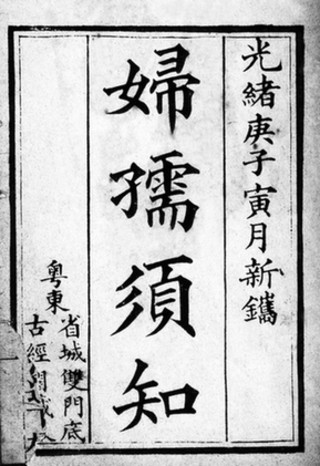 光緒庚子寅月新鐫
婦孺須知
粵東
省城雙門底
古經閣